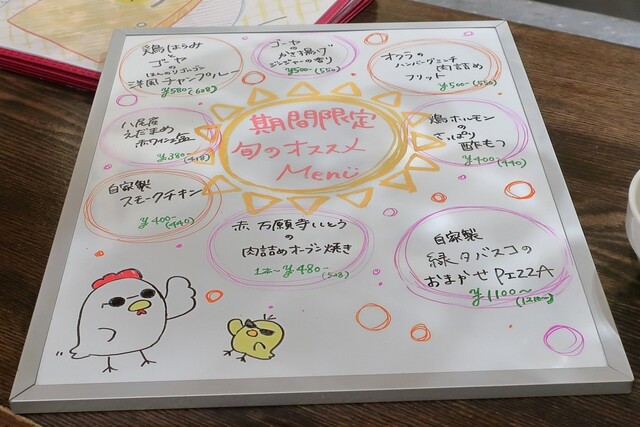 期間限定
旬のオススメ
Menu
鶏はらみ
と
ゴーヤの
ほんのりゴルゴン
洋風チャンプルー
¥580(608)
ゴーヤ
の
かき揚げ
ジンジャーの香り
¥500-(550)
オクラの
ハンバーグミンチ
肉詰め
フリット
¥500-(550)
八尾産
えだまめ
赤ワイン塩
¥380-(418)
鶏ホルモン
の
さっぱり
酢もつ
¥400(440)
自家製
スモークチキン
¥400-(440)
赤万願寺とうとう
の
肉詰めオーブン焼き
1本~¥480-(528)
自家製
緑タバスコの
おまかせPIZZA
¥1100~(1210~)